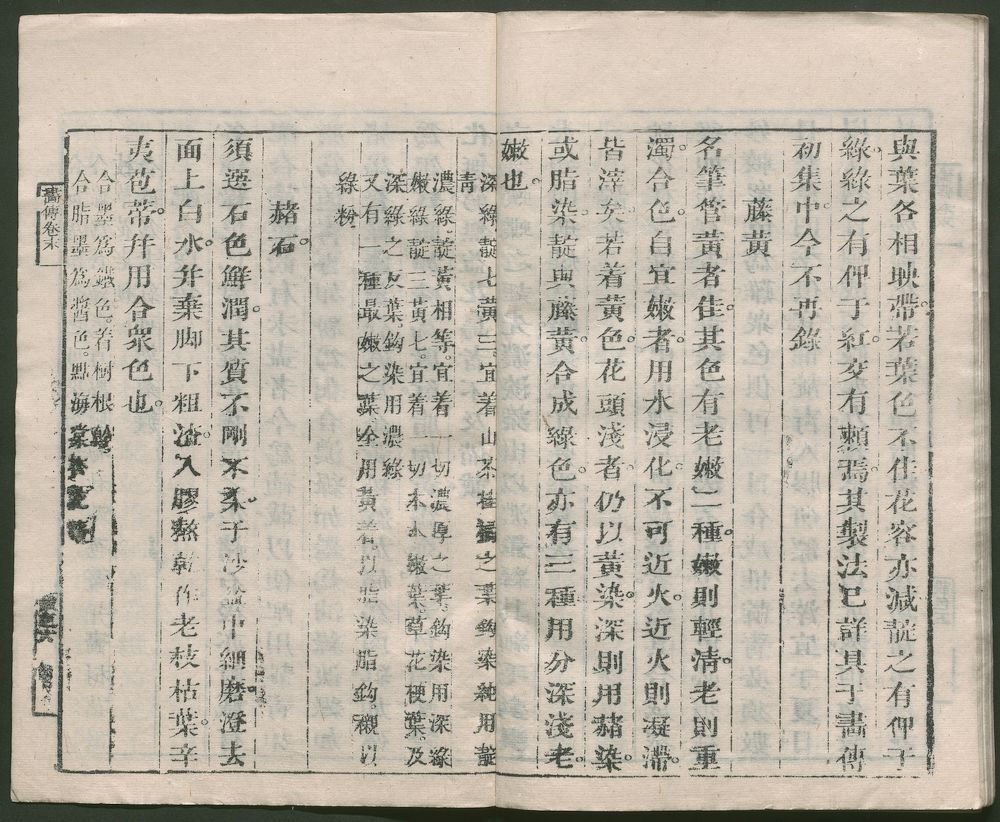 與葉各相映帶。若葉色不佳花容亦減靛之有俾于
綠。綠之有俾于紅。安有賴焉。其製法已詳具于畫傳
初集中。今不再錄
藤黃
名筆管黃者佳。其色有老嫩二種。嫩則輕清。老則重
濁。合色。白宜嫩者。用水浸化不可近火。近火則凝滯。
皆滓矣。若着黃色花頭淺者。仍以黃染。深則用赭染。
或脂染。靛與藤黃。合成綠色。亦有三種用分深淺老
嫩也。
深綠。靛七黃三。宜着山茶桂橘之葉鈎染純用靛
青
濃綠。靛黃相等。宜着一切濃厚之葉。鈎染用深綠
嫩綠。靛三黃七。宜着一切木本嫩葉。草花梗葉及
深綠之反葉。鈎染用濃綠
又有一種最嫩之葉。全用黃着。以脂染脂鈎。襯以
綠粉
赭石。
須選石色鮮潤。其質不剛不柔。于沙盆中細磨。澄去
面上白水。幷棄脚下粗渣。入膠熬乾。作老枝枯葉。辛
夷苞蒂。幷用合衆色也。
合墨爲鐵色。着樹根
合脂墨爲醬色。點海棠
畵傳卷末